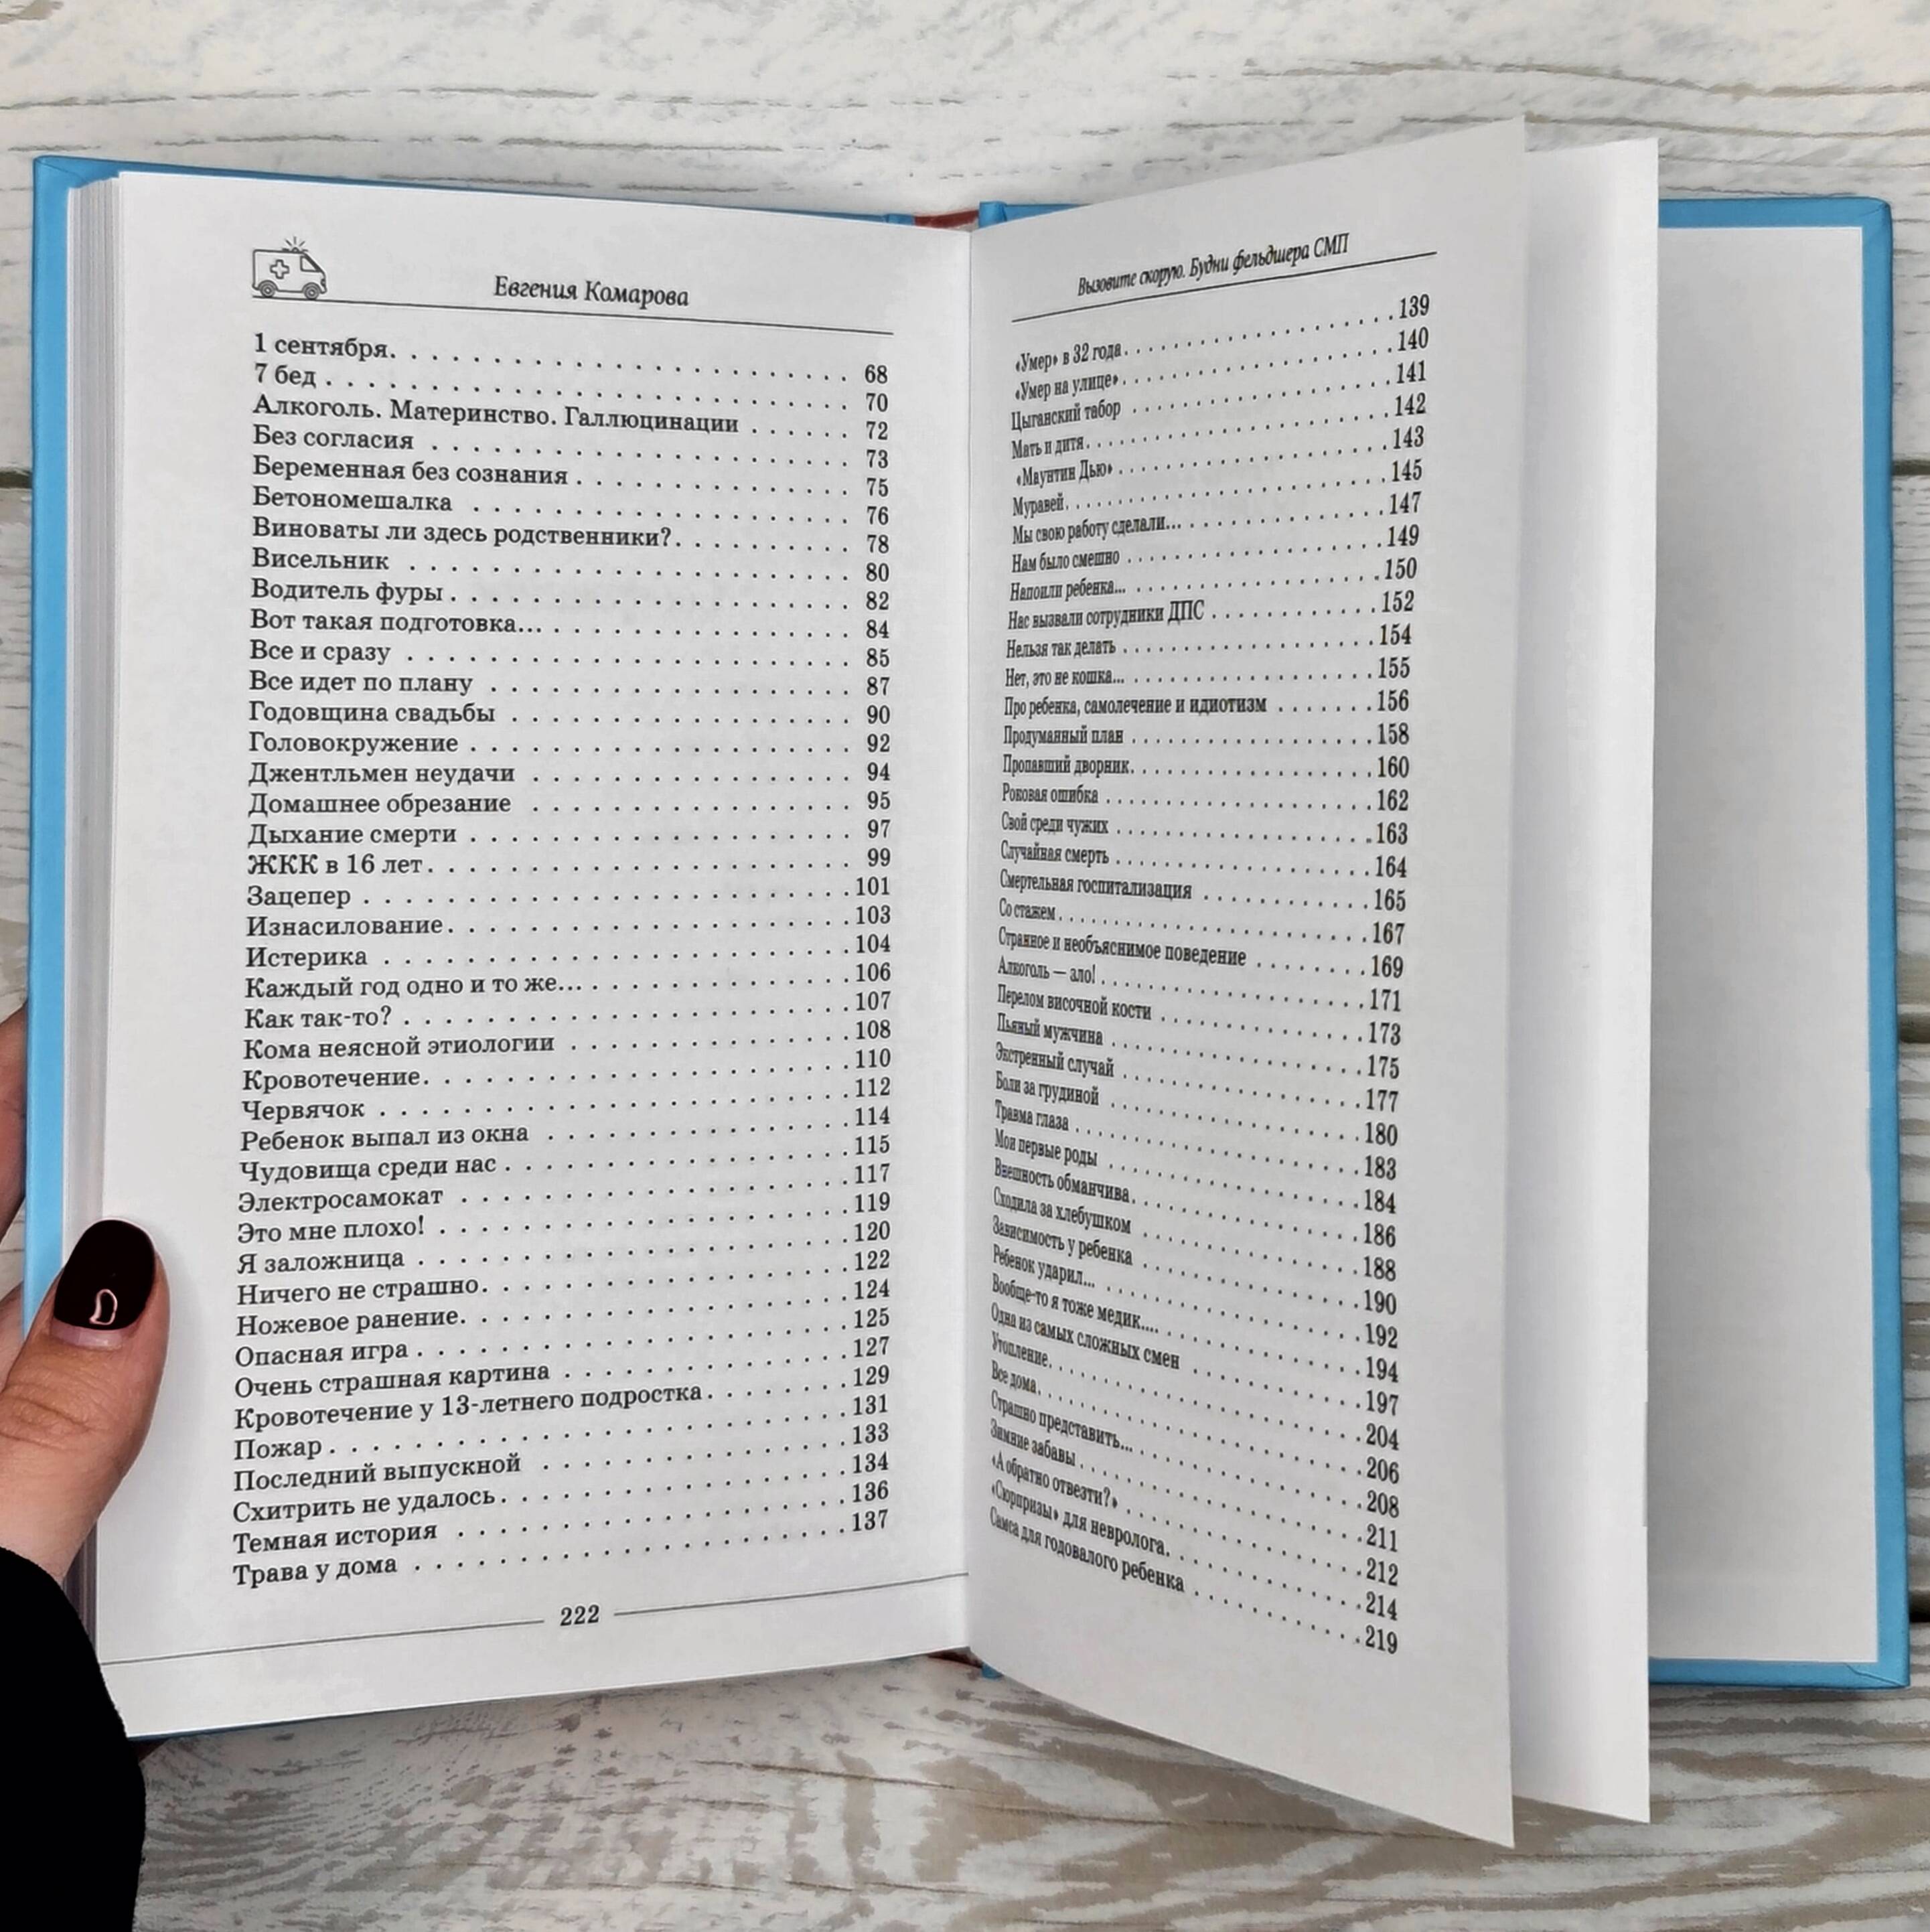 Евгения Комарова
1 сентября. . . . . . . . . . 68
7 бед . . . . . . . . . . 70
Алкоголь. Материнство. Галлюцинации . . . . . . 72
Без согласия . . . . . . . . . . 73
Беременная без сознания . . . . . . . . . . 75
Бетономешалка . . . . . . . . . . 76
Виноваты ли здесь родственники? . . . . . . . . . . 78
Висельник . . . . . . . . . . 80
Водитель фуры . . . . . . . . . . 82
Вот такая подготовка... . . . . . . . . . . 84
Все и сразу . . . . . . . . . . 85
Все идет по плану . . . . . . . . . . 87
Годовщина свадьбы . . . . . . . . . . 90
Головокружение . . . . . . . . . . 92
Джентльмен неудачи . . . . . . . . . . 94
Домашнее обрезание . . . . . . . . . . 95
Дыхание смерти . . . . . . . . . . 97
ЖКК в 16 лет . . . . . . . . . . 99
Зацепер . . . . . . . . . . 101
Изнасилование . . . . . . . . . . 103
Истерика . . . . . . . . . . 104
Каждый год одно и то же... . . . . . . . . . . 106
Как так-то? . . . . . . . . . . 107
Кома неясной этиологии . . . . . . . . . . 108
Кровотечение . . . . . . . . . . 110
Червячок . . . . . . . . . . 112
Ребенок выпал из окна . . . . . . . . . . 114
Чудовища среди нас . . . . . . . . . . 115
Электросамокат . . . . . . . . . . 117
Это мне плохо! . . . . . . . . . . 119
Я заложница . . . . . . . . . . 120
Ничего не страшно . . . . . . . . . . 122
Ножевое ранение . . . . . . . . . . 124
Опасная игра . . . . . . . . . . 125
Очень страшная картина . . . . . . . . . . 127
Кровотечение у 13-летнего подростка . . . . . . . 129
Пожар . . . . . . . . . . 131
Последний выпускной . . . . . . . . . . 133
Схитрить не удалось . . . . . . . . . . 134
Темная история . . . . . . . . . . 136
Трава у дома . . . . . . . . . . 137
222
Вызовите скорую. Будни фельдшера СМП
«Умер» в 32 года . . . . . . . . . . 139
«Умер на улице» . . . . . . . . . . 140
Цыганский табор . . . . . . . . . . 141
Мать и дитя . . . . . . . . . . 142
«Маунтин Дью» . . . . . . . . . . 143
Муравей . . . . . . . . . . 145
Мы свою работу сделали... . . . . . . . . . . 147
Нам было смешно . . . . . . . . . . 149
Напоили ребенка... . . . . . . . . . . 150
Нас вызвали сотрудники ДПС . . . . . . . . . . 152
Нельзя так делать . . . . . . . . . . 154
Нет, это не кошка... . . . . . . . . . . 155
Про ребенка, самолечение и идиотизм . . . . . . . 156
Продуманный план . . . . . . . . . . 158
Пропавший дворник . . . . . . . . . . 160
Роковая ошибка . . . . . . . . . . 162
Свой среди чужих . . . . . . . . . . 163
Случайная смерть . . . . . . . . . . 164
Смертельная госпитализация . . . . . . . . . . 165
Со стажем . . . . . . . . . . 167
Странное и необъяснимое поведение . . . . . . . . 169
Алкоголь — зло! . . . . . . . . . . 171
Перелом височной кости . . . . . . . . . . 173
Пьяный мужчина . . . . . . . . . . 175
Экстренный случай . . . . . . . . . . 177
Боли за грудиной . . . . . . . . . . 180
Травма глаза . . . . . . . . . . 183
Мои первые роды . . . . . . . . . . 184
Внешность обманчива . . . . . . . . . . 186
Сходила за хлебушком . . . . . . . . . . 188
Зависимость у ребенка . . . . . . . . . . 190
Ребенок ударил... . . . . . . . . . . 192
Вообще-то я тоже медик.... . . . . . . . . . . 194
Одна из самых сложных смен . . . . . . . . . . 197
Утопление . . . . . . . . . . 204
Все дома . . . . . . . . . . 206
Страшно представить... . . . . . . . . . . 208
Зимние забавы . . . . . . . . . . 211
«А обратно отвезти?» . . . . . . . . . . 212
«Сюрпризы» для невролога . . . . . . . . . . 214
Самса для годовалого ребенка . . . . . . . . . . 219